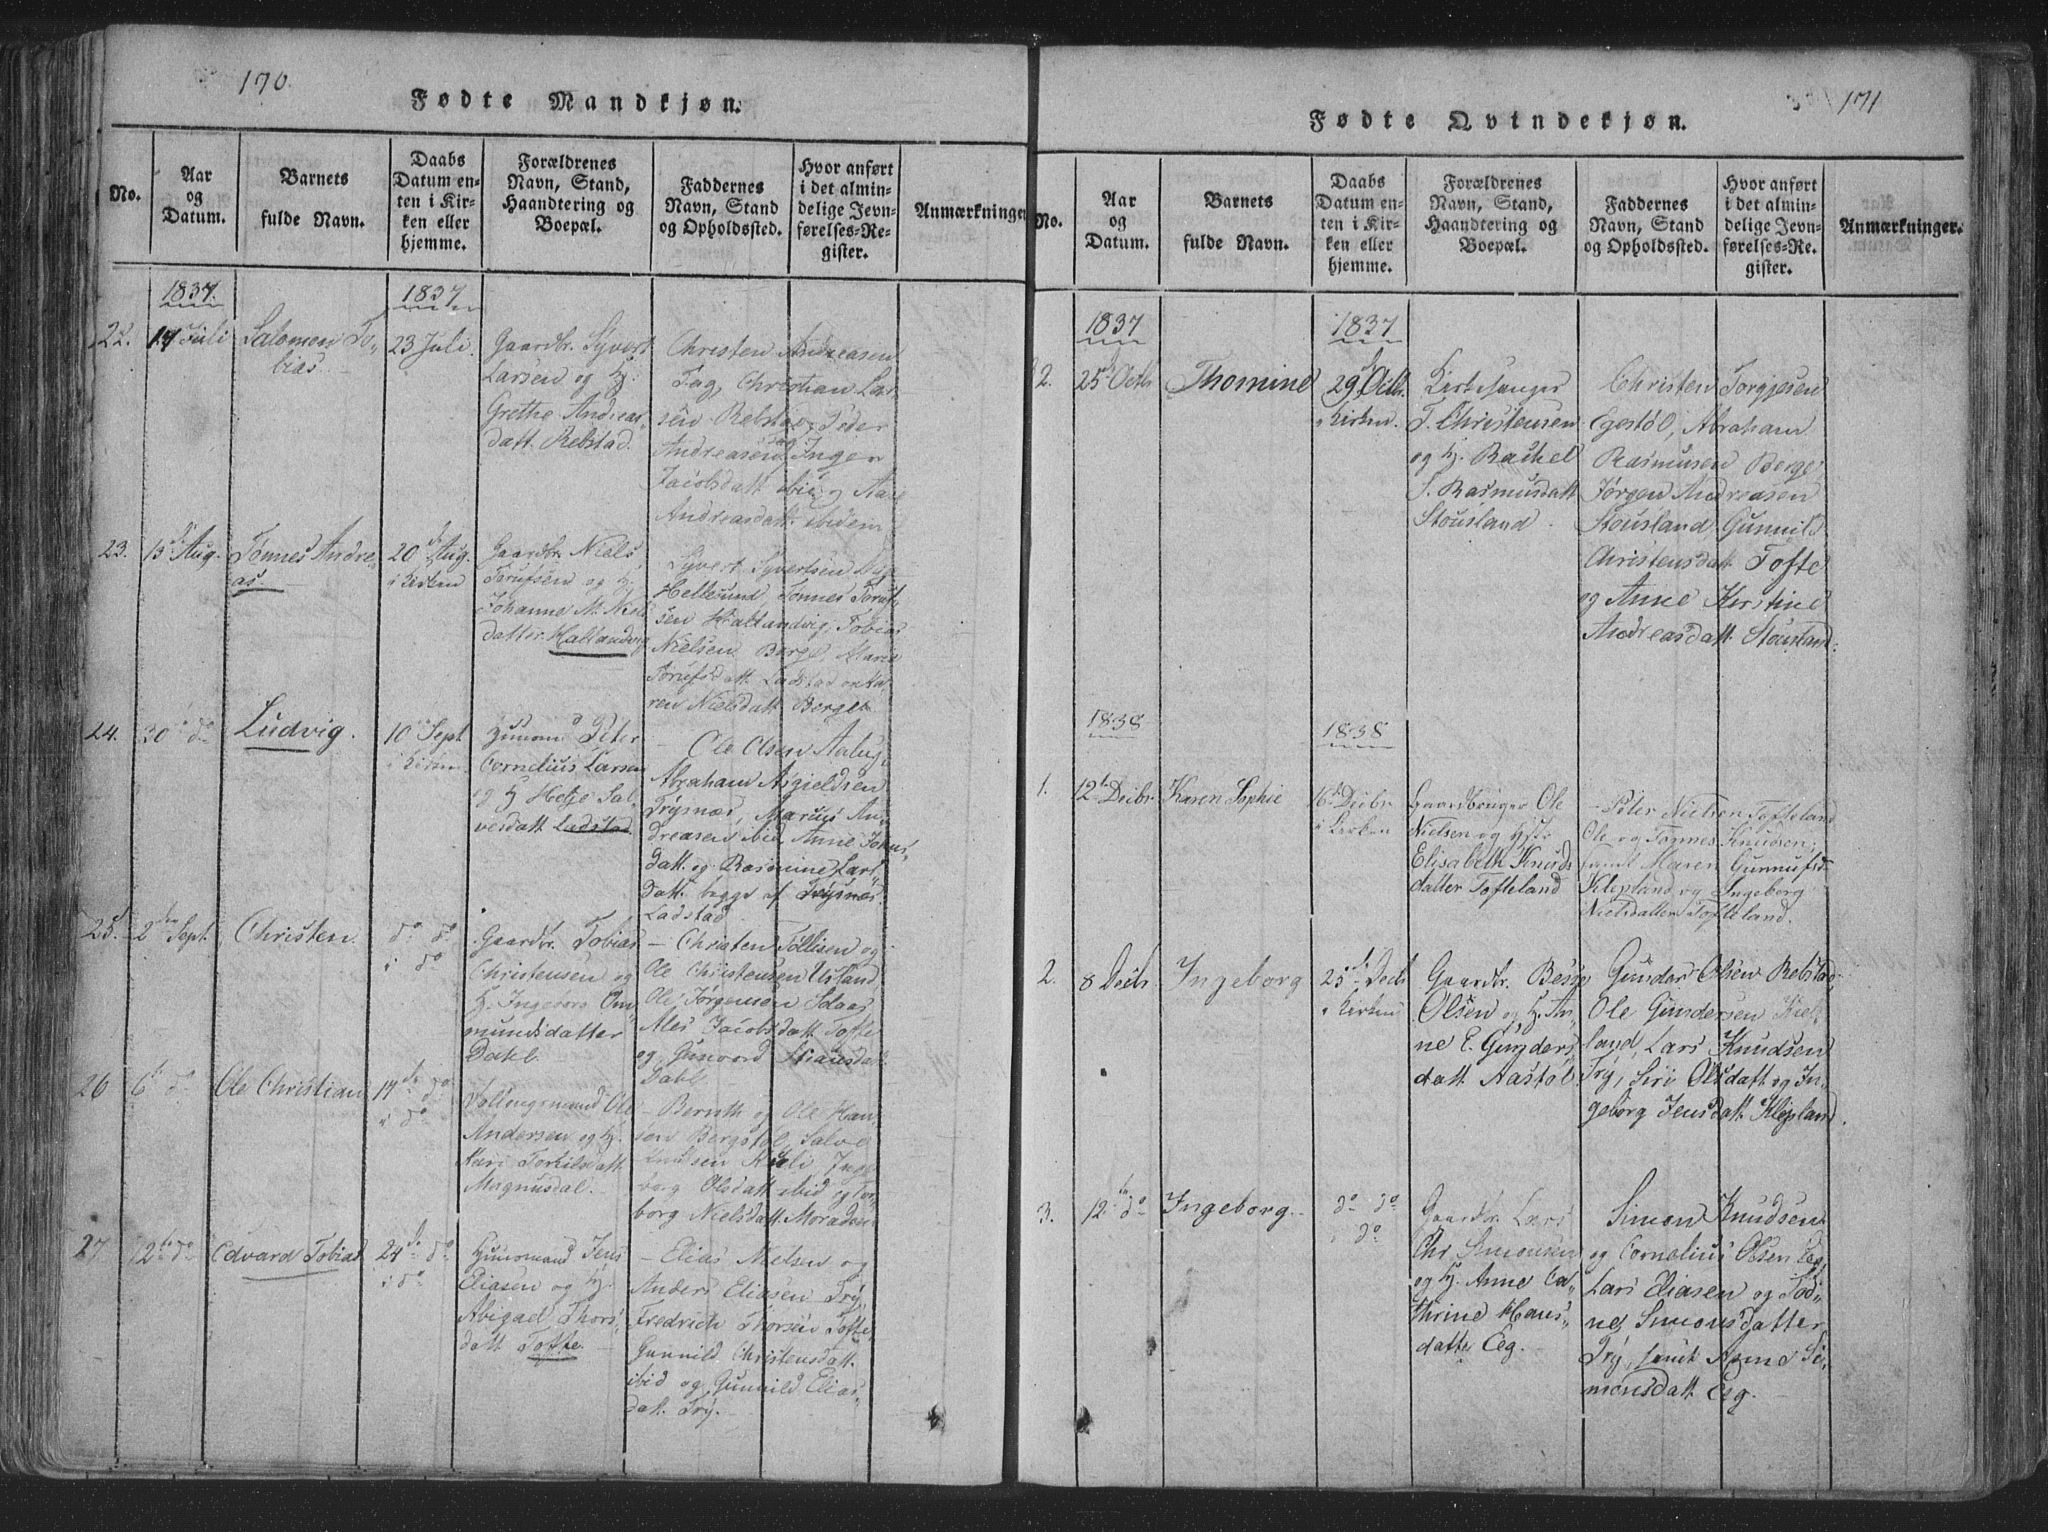 170.
Fødte Mandkjøn.
No.
Aar
og
Datum.
Barnets
fulde Navn.
Daabs
Datum en-
ten i Kir-
ken eller
hjemme.
Forældrenes
Navn, Stand,
Haandtering og
Boepæl.
Faddernes
Navn, Stand
og Opholdssted.
Hvor anført
i det almin-
delige Jevn-
førelses-Re-
gister.
Anmærkninger
1837.
1837
22.
17 Juli
Salomon To-
bias.
23 Juli.
Gaardbr. Syvert
Larsen og H.
Grethe Andreas-
datt. Rebstad.
Christen Andreasen
Tag, Christian Lar-
sen Rebstad, Peder
Andreasen Tag, Inger
Jacobsdatt ibid og Aase
Andreasdatt. ibidem
23.
13 Aug.
Tønnes Andre-
as.
20 Aug.
i Kirken
Gaardbr. Niels
Torufsen og H.
Johanne M. Niels
datter Hallandvig
Syvert Syvertsen
Hellesund Tønnes Toruf
sen Hallandvig, Tobias
Nielsen Berge, Maria
Torufsdatt. Ladstad og Ka-
ren Nielsdatt Berget
24.
30 do
Ludvig.
10 Sept
i Kirken
Huusmd Peter
Cornelius Larsen
og H Helje Sal-
vesdatt Ladstad
Ole Olsen
Abraham Asgieldsen
Trysnæs, Marius An-
dreasen ibid, Anne Johns-
datt. og Rasmine Lars-
datt. begge af Trysnæs.
Ladstad
25.
2 Sept.
Christen
do do
i do
Gaardbr. Tobias
Christensen og
H. Ingeborg Om-
mundsdatter
Dahl.
– Christen Tollisen og
Ole Christensen Usland
Ole Jørgensen Solaas
Ales Jacobsdatt Tofte
og Gunvord
Dahl
26
6 do
Ole Christian
17 do
i do
Ole
Andersen og H.
Kari Torkilsdatt
Magnusdal.
– Bernth og Ole Han-
sen Bergstøl, Salve
Knudsen Inge
borg Olsdatt ibid og Tor-
borg Nielsdatt.
27
12 do
Edvard Tobias
24 do
i do
Huusmand Jens
Eliasen og H.
Abigael Thors-
datt Tofte.
– Elias Nielsen og
Anders Eliasen Try,
Fredrich Thorsen Tofte,
Gunnild Christensdatt.
ibid og Gunnild Elias-
datt. Try.
171
Fødte Qvindekjøn.
No.
Aar
og
Datum.
Barnets
fulde Navn.
Daabs
Datum en-
ten i Kir-
ken eller
hjemme.
Forældrenes
Navn, Stand,
Haandtering og
Boepæl.
Faddernes
Navn, Stand
og Opholdssted.
Hvor anført
i det almin-
delige Jevn-
førelses-Re-
gister.
Anmærkninger.
1837
1837
2.
25 Octb
Thomine
29 Octb.
i Kirken.
Kirkesanger
T. Christensen
og H. Rachel
S. Rasmusdatt
Stousland
Christen Torgjesen
Egestøl, Abraham
Rasmusen Berge
Jørgen Andreasen
Stousland, Gunnild
Christensdatt Tofte
og Anne Kerstine
Andreasdatt. Stousland
1838
1838
1.
12 Decbr
Karen Sophie
16 Decbr
i Kirken
Gaardbruger Ole
Nielsen og Hstr
Elisabeth Knuds
datter Tofteland
– Peter Nielsen Tofteland
Ole og Tønnes Knudsen,
samt Maren Gunnufsd
Klepland og Ingeborg
Nielsdatter Tofteland.
2.
8 Decbr
Ingeborg
25 Decb
i Kirken
Gaardbr. Berge
Olsen og H. An-
ne E. Gunders-
datt Aastøl
Gunder Olsen Rebstad
Ole Gundersen Kiel-
land, Lars Knudsen
Try, Siri Olsdatt og In-
geborg Jensdatt. Klepland.
3.
12 do
Ingeborg.
do do
i do
Gaardbr. Lars
Chr Simonsen
og H. Anne Ca-
thrine Hans-
datter Eeg.
Simon Knudsen
og Cornelius Olsen Eeg,
Lars Eliasen og Tod-
ne Simonsdatter
Try, samt Anne Si-
monsdatt. Eeg.